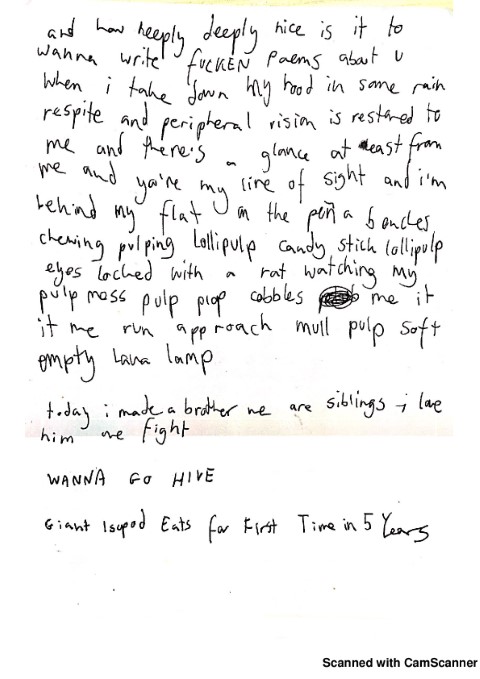 and how heeply deeply nice is it to
wanna write fucKEN poems about u
when i take down my hood in some rain
respite and peripheral vision is restored to
me and there's a glance at east from
me and you're my line of sight and i'm
behind my flat on the a bendes
chewing pulping lollipulp candy stick lollipulp
eyes locked with a rat watching my
pulp mass pulp plop cobbles me it
it me run approach mull pulp soft
empty lava lamp
today i made a brother we are siblings i love
him we fight
WANNA GO HIVE
Giant Isopod Eats for First Time in 5 Years
Scanned with CamScanner